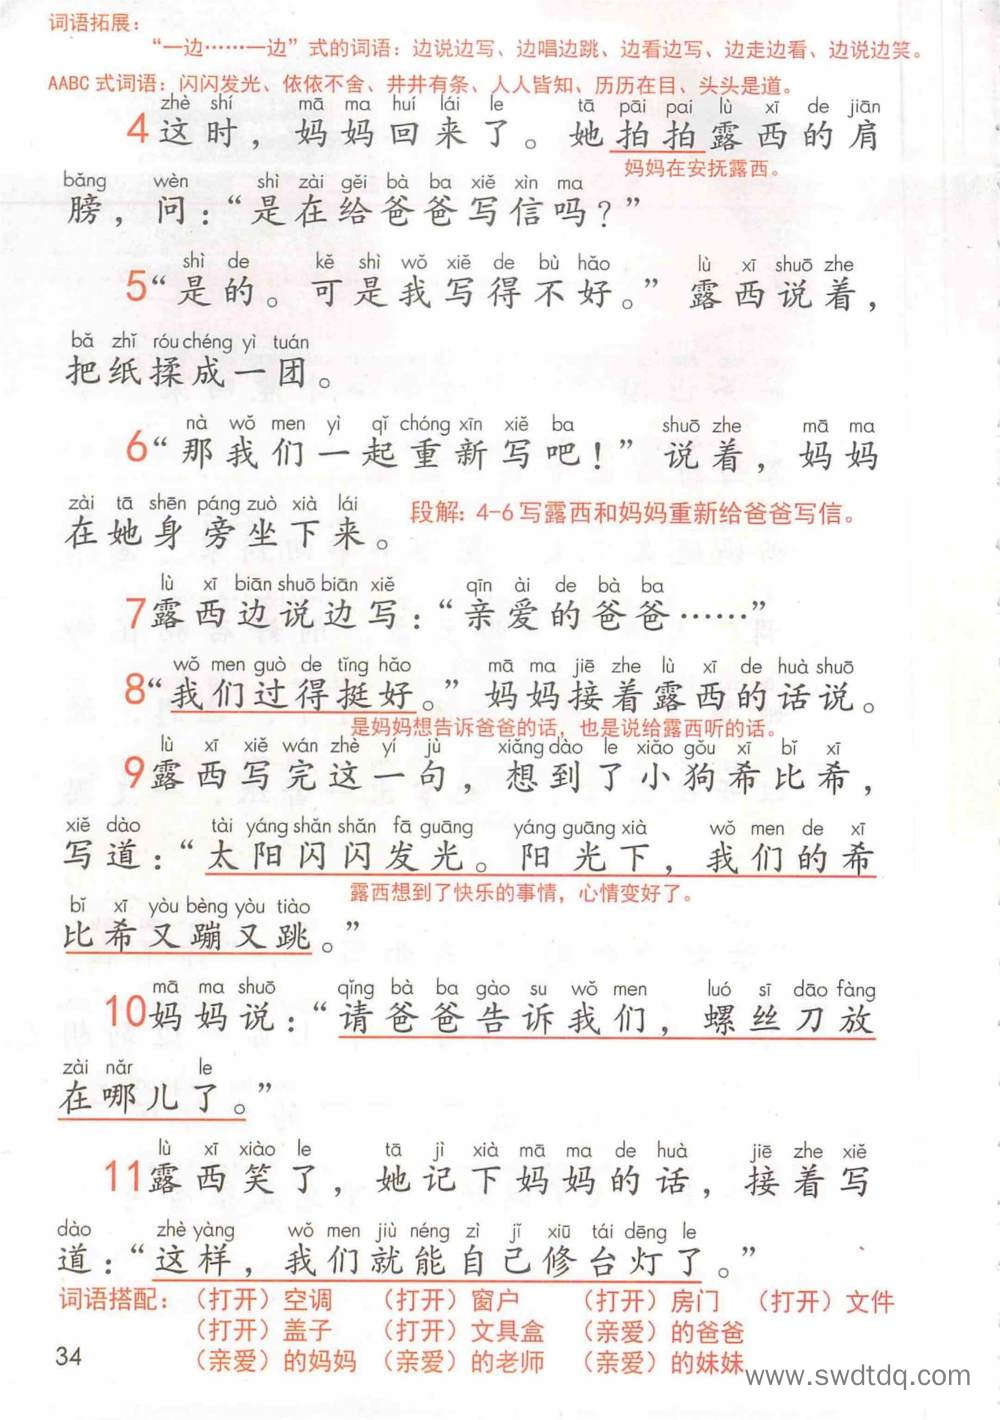 词语拓展：
“一边……一边”式的词语：边说边写、边唱边跳、边看边写、边走边看、边说边笑。
AABC 式词语：闪闪发光、依依不舍、井井有条、人人皆知、历历在目、头头是道。
zhè shí mā ma huí lái le tā pāi pai lù xī de jiān
4 这时，妈妈回来了。她拍拍露西的肩
妈妈在安抚露西。
bǎng wèn shì zài gěi bà ba xiě xìn ma
膀，问：“是在给爸爸写信吗？”
shì de kě shì wǒ xiě de bù hǎo lù xī shuō zhe
5 “是的。可是我写得不好。”露西说着，
bǎ zhǐ róu chéng yì tuán
把纸揉成一团。
nà wǒ men yì qǐ chóng xīn xiě ba shuō zhe mā ma
6 “那我们一起重新写吧！”说着，妈妈
zài tā shēn páng zuò xià lái
在她身旁坐下来。 段解：4-6 写露西和妈妈重新给爸爸写信。
lù xī biān shuō biān xiě qīn ài de bà ba
7 露西边说边写：“亲爱的爸爸……”
wǒ men guò de tǐng hǎo mā ma jiē zhe lù xī de huà shuō
8 “我们过得挺好。”妈妈接着露西的话说。
是妈妈想告诉爸爸的话，也是说给露西听的话。
lù xī xiě wán zhè yí jù xiǎng dào le xiǎo gǒu xī bǐ xī
9 露西写完这一句，想到了小狗希比希，
xiě dào tài yáng shǎn shǎn fā guāng yáng guāng xià wǒ men de xī
写道：“太阳闪闪发光。阳光下，我们的希
露西想到了快乐的事情，心情变好了。
bǐ xī yòu bèng yòu tiào
比希又蹦又跳。”
mā ma shuō qǐng bà ba gào su wǒ men luó sī dāo fàng
10 妈妈说：“请爸爸告诉我们，螺丝刀放
zài nǎr le
在哪儿了。”
lù xī xiào le tā jì xià mā ma de huà jiē zhe xiě
11 露西笑了，她记下妈妈的话，接着写
dào zhè yàng wǒ men jiù néng zì jǐ xiū tái dēng le
道：“这样，我们就能自己修台灯了。”
词语搭配：（打开）空调 （打开）窗户 （打开）房门 （打开）文件
（打开）盖子 （打开）文具盒 （亲爱）的爸爸
（亲爱）的妈妈 （亲爱）的老师 （亲爱）的妹妹
34
www.swdtdq.com